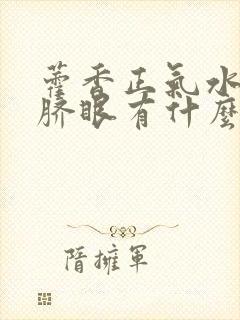 藿香正氣水
臍眼有什麼
隋擁軍